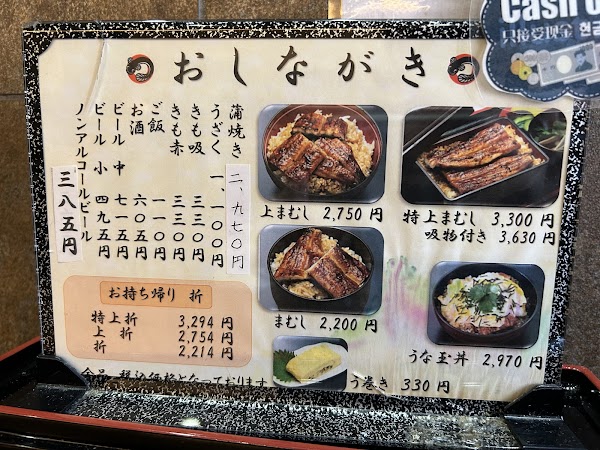 Cash o
只接受现金 현금
おしながき
蒲焼き 二、九七〇円
うざく 一、一〇〇円
きも吸 三三〇円
きも赤 三三〇円
ご飯 一一〇円
お酒 六〇五円
ビール 中 七一五円
ビール 小 四九五円
ノンアルコールビール 三八五円
上まむし 2,750 円
特上まむし 3,300 円
吸物付き 3,630 円
まむし 2,200 円
うな玉丼 2,970 円
う巻き 330 円
お持ち帰り 折
特上折 3,294 円
上 折 2,754 円
折 2,214 円
全品 税込価格となっております